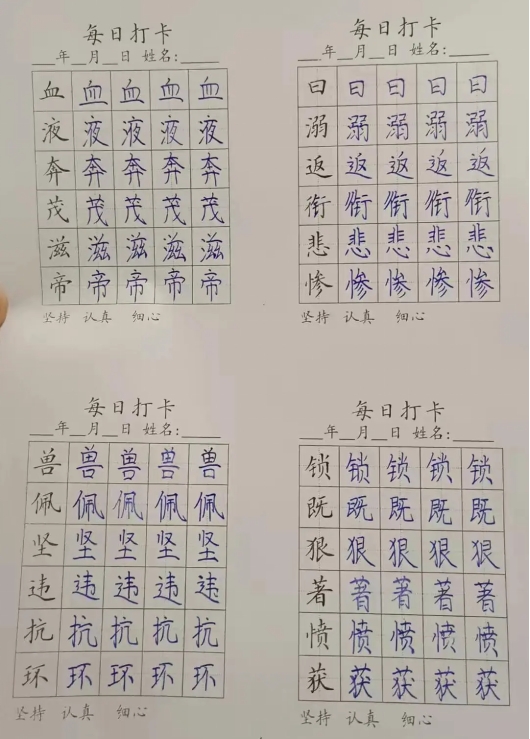 每日打卡
___年__月__日 姓名:_____
血 血 血 血 血
液 液 液 液 液
奔 奔 奔 奔 奔
茂 茂 茂 茂 茂
滋 滋 滋 滋 滋
帝 帝 帝 帝 帝
坚持 认真 细心
每日打卡
___年__月__日 姓名:_____
曰 曰 曰 曰 曰
溺 溺 溺 溺 溺
返 返 返 返 返
衔 衔 衔 衔 衔
悲 悲 悲 悲 悲
惨 惨 惨 惨 惨
坚持 认真 细心
每日打卡
___年__月__日 姓名:_____
兽 兽 兽 兽 兽
佩 佩 佩 佩 佩
坚 坚 坚 坚 坚
违 违 违 违 违
抗 抗 抗 抗 抗
环 环 环 环 环
坚持 认真 细心
每日打卡
___年__月__日 姓名:_____
锁 锁 锁 锁 锁
既 既 既 既 既
狠 狠 狠 狠 狠
著 著 著 著 著
愤 愤 愤 愤 愤
获 获 获 获 获
坚持 认真 细心